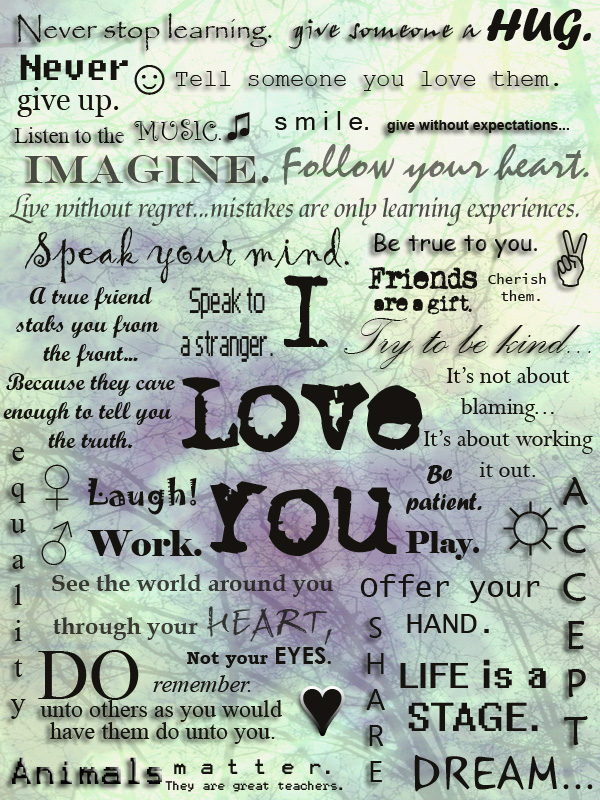 Never stop learning. give someone a HUG.
Never
give up.
☺ Tell someone you love them.
Listen to the MUSIC.♫
smile.
give without expectations...
IMAGINE. Follow your heart.
Live without regret...mistakes are only learning experiences.
Speak your mind.
Be true to you.
Friends
are a gift.
Cherish
them.
A true friend
stabs you from
the front...
Because they care
enough to tell you
the truth.
Speak to
a stranger.
I
LOVE
YOU
Try to be kind...
It's not about
blaming...
It's about working
it out.
Be
patient.
equality
♀ Laugh!
♂ Work.
Play.
ACCEPT
See the world around you
through your HEART,
Not your EYES.
Offer your
HAND.
SHARE
DO remember.
unto others as you would
have them do unto you.
LIFE is a
STAGE.
Animals matter.
They are great teachers.
DREAM...